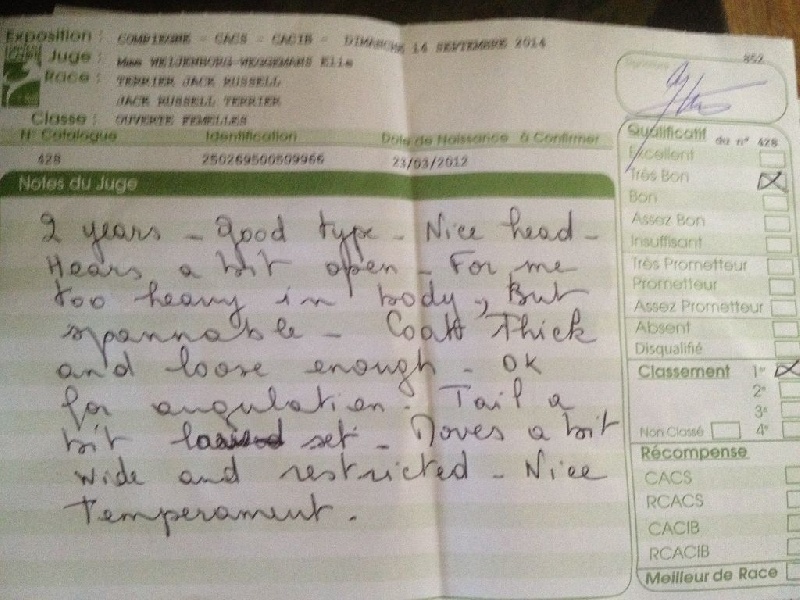 Exposition : COMPIEGNE - CACS - CACIB - DIMANCHE 14 SEPTEMBRE 2014
Juge : Mme WEIJENBORG-WEGGEMANS Elie
Race : TERRIER JACK RUSSELL
JACK RUSSELL TERRIER
Classe : OUVERTE FEMELLES
N° Catalogue Identification Date de Naissance à Confirmer
428 250269500509966 23/03/2012
Notes du Juge
2 years - good type - Nice head -
Hears a bit open - For me
too heavy in body, But
spannable - Coat Thick
and loose enough - OK
for angulation. Tail a
bit set - Moves a bit
wide and restricted - Nice
Temperament.
852
Qualificatif du n° 428
Excellent
Très Bon
Bon
Assez Bon
Insuffisant
Très Prometteur
Prometteur
Assez Prometteur
Absent
Disqualifié
Classement 1er
2e
3e
Non Classé 4e
Récompense
CACS
RCACS
CACIB
RCACIB
Meilleur de Race